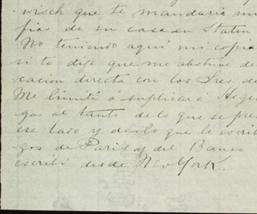 wisch que te mandaria mi
fias de su casa en Staten
No teniendo aquí mi copia
si te dije que me abstuve de
cación directa con los Sres. de
Me limité á suplicar á
gas al tanto de lo que se pre
ese caso y de lo que le escrib
gos de Paris y del Banco
escribí desde New York.